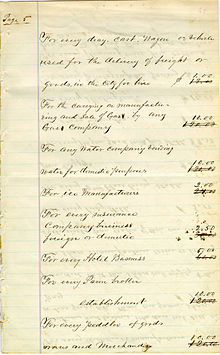 Page 5
For every dray, cart, Wagon or vehicle
used for the delivery of freight or
goods, in the City, for hire $
For the carrying on manufactur-
ing and Sale of Gas by any
Gas Company 10.00
For any Water Company
water for domestic purposes 10.00
For ice Manufacturers 2.00
For every insurance
Company business
foreign or domestic 2.50
For every Hotel Business
For every Pawn broker
establishment 10.00
For every peddler of goods
wares and Merchandise 10.00